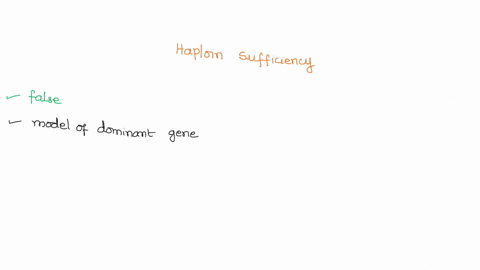 Haploin sufficiency
✓ false
✓ model of dominant gene